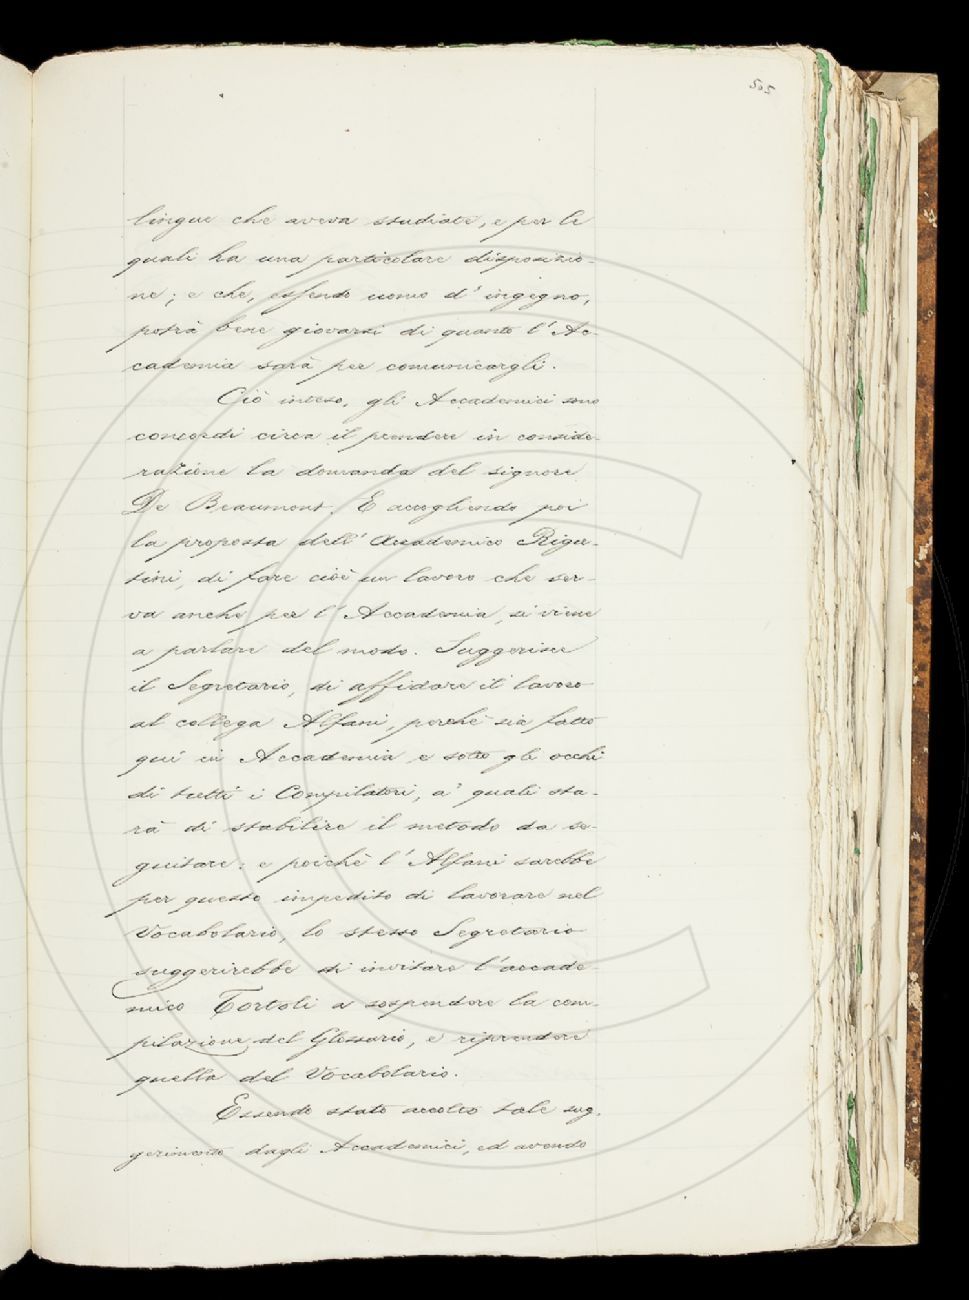 505
lingue che aveva studiate, e per le
quali ha una particolare disposizio-
ne; e che, essendo uomo d'ingegno,
potrà bene giovarsi di quanto l'Ac-
cademia sarà per comunicargli.
Ciò inteso, gli Accademici sono
concordi circa il prendere in conside-
razione la domanda del signore
De Beaumont. E accogliendo poi
la proposta dell'Accademico Rigu-
tini, di fare cioè un lavoro che ser-
va anche per l'Accademia, si viene
a parlare del modo. Suggerisce
il Segretario, di affidare il lavoro
al collega Alfani, perchè sia fatto
quì in Accademia e sotto gli occhi
di tutti i Compilatori, a' quali sta-
rà di stabilire il metodo da se-
guitare: e poichè l'Alfani sarebbe
per questo impedito di lavorare nel
Vocabolario, lo stesso Segretario
suggerirebbe di invitare l'accade-
mico Tortoli a sospendere la com-
pilazione del Glossario, e riprendere
quella del Vocabolario.
Essendo stato accolto tale sug-
gerimento dagli Accademici, ed avendo